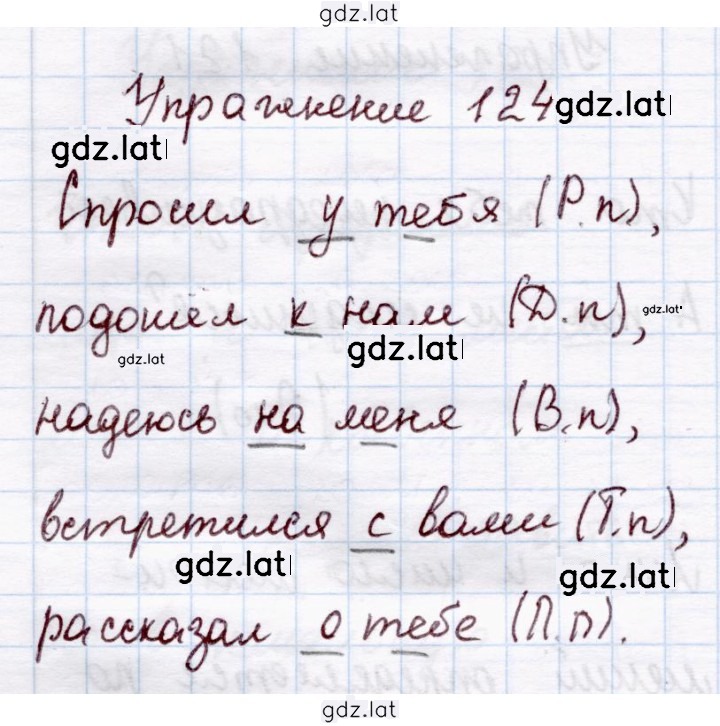 gdz.lat
Упражнение 124 gdz.lat
gdz.lat
Спросил у тебя (Р.п),
подошёл к нам (Д.п), gdz.lat
gdz.lat gdz.lat
надеюсь на меня (В.п),
встретился с вами (Т.п),
gdz.lat gdz.lat
рассказал о тебе (П.п).
gdz.lat